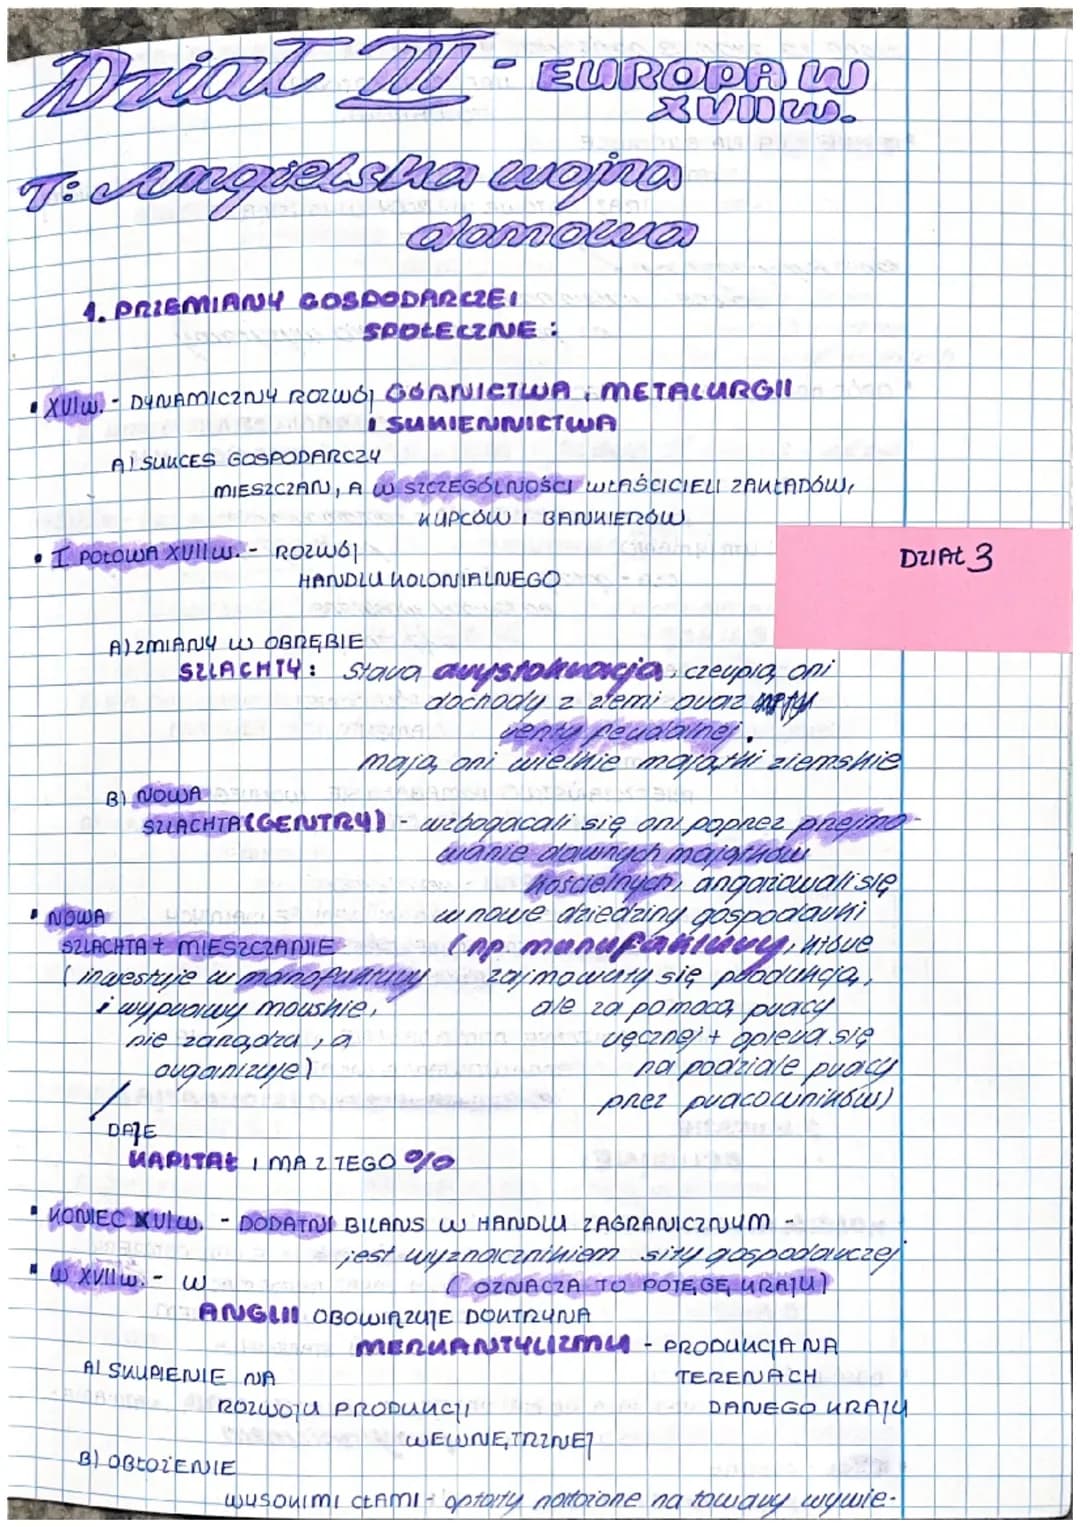 Dział III - EUROPA W
XVII w.
T: Angielska wojna
domowa
1. PRZEMIANY GOSPODARCZE I
SPOŁECZNE :
• XVI w. - DYNAMICZNY ROZWÓJ GÓRNICTWA, METALURGII
I SUKIENNICTWA
A) SUKCES GOSPODARCZY
MIESZCZAN, A W SZCZEGÓLNOŚCI WŁAŚCICIELI ZAKŁADÓW,
KUPCÓW I BANKIERÓW
• I POŁOWA XVII w. - ROZWÓJ
HANDLU KOLONIALNEGO
DZIAŁ 3
A) ZMIANY W OBRĘBIE
SZLACHTY: Stara arystokracja, czerpią oni
dochody z ziemi oraz
renty feudalnej.
mają oni wielkie majątki ziemskie
B) NOWA
SZLACHTA (GENTRY) - wzbogacali się oni poprzez przejmo-
wanie dawnych majątków
kościelnych, angażowali się
w nowe dziedziny gospodarki
(np. manufaktury, które
zajmowały się produkcją,
ale za pomocą pracy
ręcznej + opiera się
na podziale pracy
przez pracowników)
• NOWA
SZLACHTA + MIESZCZANIE
(inwestuje w manufaktury
i wyprawy morskie,
nie zarządza, a
organizuje)
DAJE
KAPITAŁ I MA Z TEGO %
• KONIEC XVI w. - DODATNI BILANS W HANDLU ZAGRANICZNYM -
jest wyznacznikiem siły gospodarczej
(OZNACZA TO POTĘGĘ KRAJU)
• W XVII w. - W
ANGLII OBOWIĄZUJE DOKTRYNA
MERKANTYLIZMU - PRODUKCJA NA
TERENACH
DANEGO KRAJU
A) SKUPIENIE NA
ROZWOJU PRODUKCJI
WEWNĘTRZNEJ
B) OBŁOŻENIE
WYSOKIMI CŁAMI - opłaty nałożone na towary wywie-